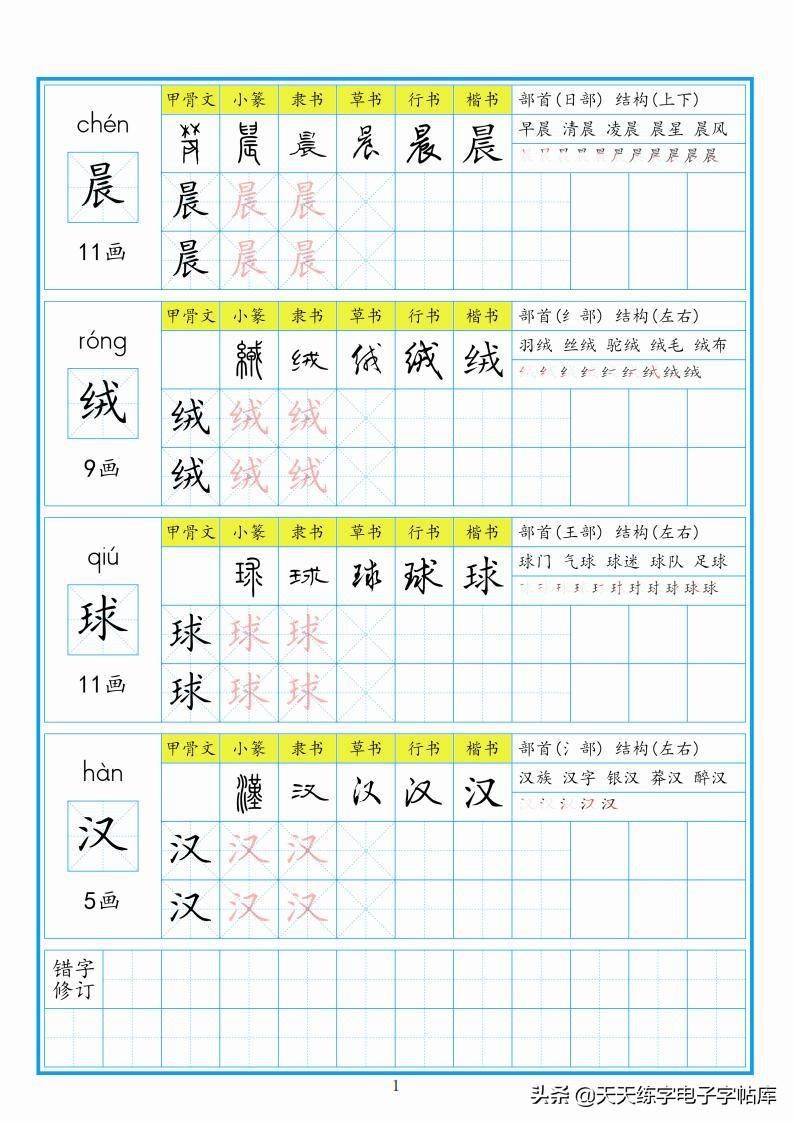 chén
晨
11画
甲骨文 小篆 隶书 草书 行书 楷书 部首(日部) 结构(上下)
晨 晨 晨 晨 晨 早晨 清晨 凌晨 晨星 晨风
晨 晨 晨
晨 晨 晨
róng
绒
9画
甲骨文 小篆 隶书 草书 行书 楷书 部首(纟部) 结构(左右)
绒 绒 绒 绒 绒 羽绒 丝绒 驼绒 绒毛 绒布
绒 绒 绒
绒 绒 绒
qiú
球
11画
甲骨文 小篆 隶书 草书 行书 楷书 部首(王部) 结构(左右)
球 球 球 球 球 球门 气球 球迷 球队 足球
球 球 球
球 球 球
hàn
汉
5画
甲骨文 小篆 隶书 草书 行书 楷书 部首(氵部) 结构(左右)
漢 汉 汉 汉 汉 汉族 汉字 银汉 莽汉 醉汉
汉 汉 汉
汉 汉 汉
错字
修订
1
头条 @天天练字电子字帖库